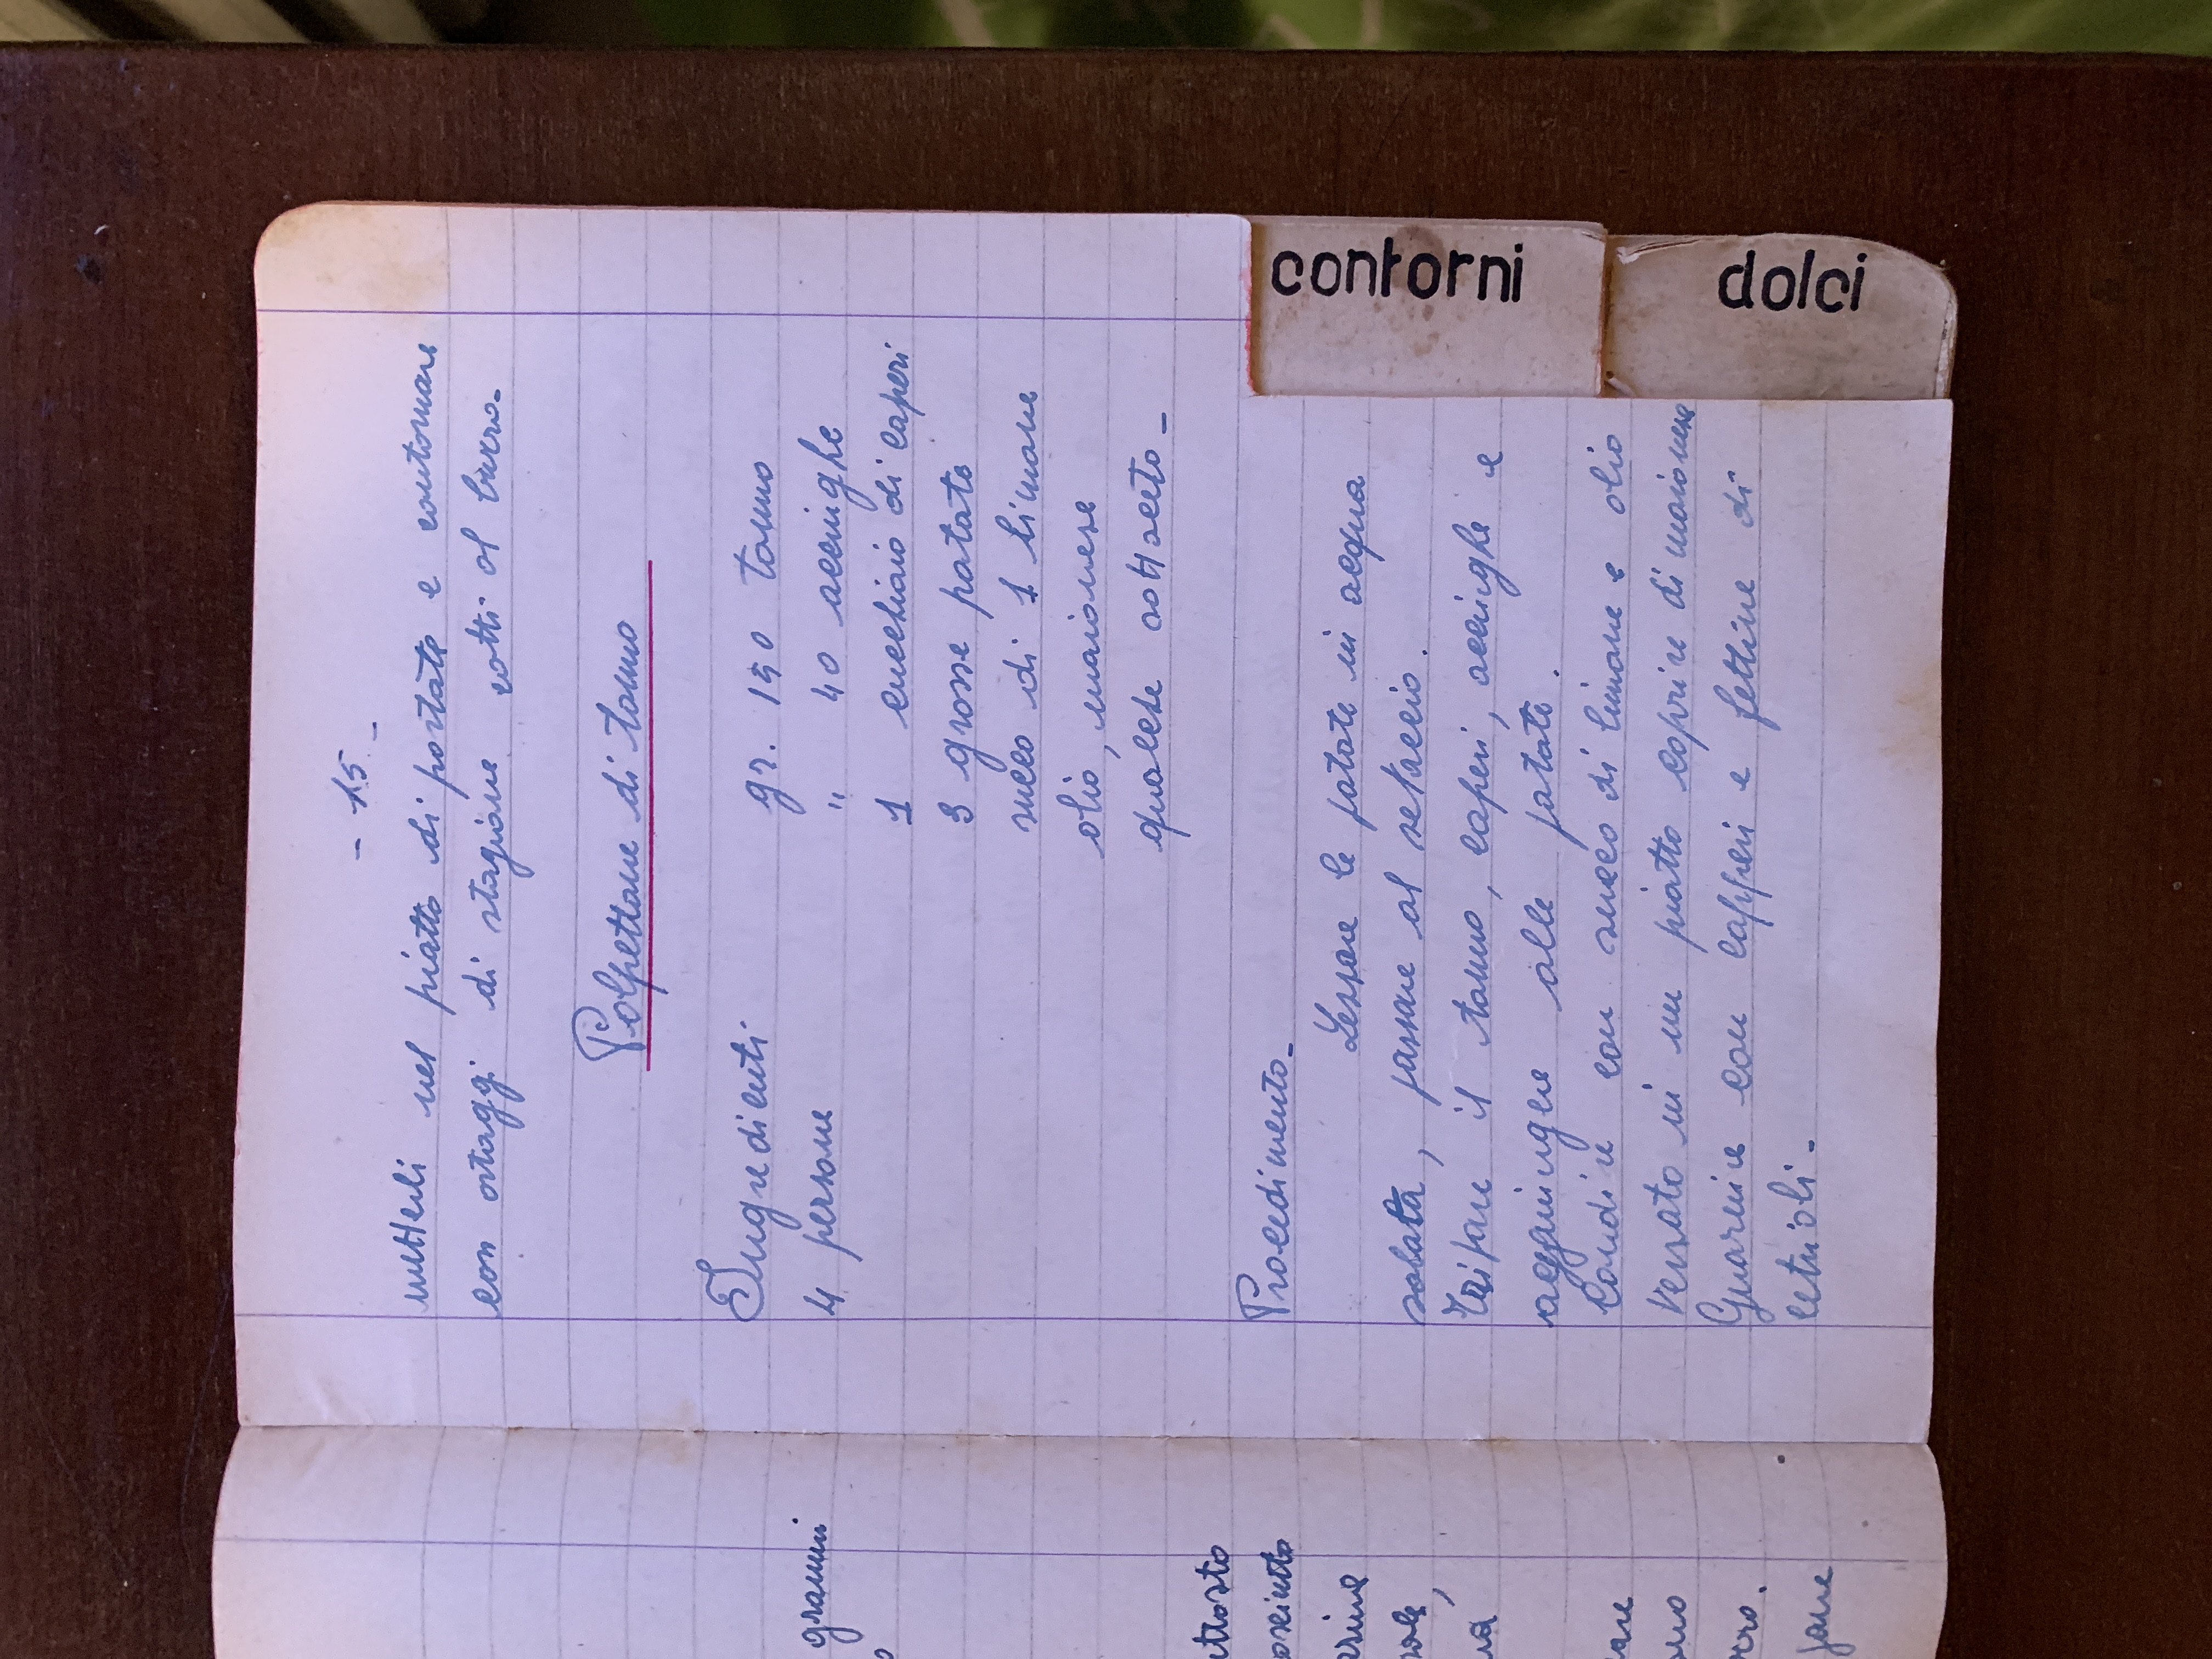 grammi
o
ttosto
osciutto
are
rro.
- 15 -
metterli nel piatto di portate e contornare
con ortaggi di stagione cotti al burro-
Polpettone di tonno
Ingredienti gr. 150 tonno
4 persone " 40 acciughe
1 cucchiaio di caperi
3 grosse patate
succo di 1 limone
olio, maionese
qualche sottaceto-
Procedimento-
Lessare le patate in acqua
salata, passare al setaccio.
Tritare il tonno, caperi, acciughe e
aggiungere alle patate.
Condire con succo di limone e olio
Versato in un piatto coprire di maionese
Guarnire con capperi e fettine di
cetrioli-
contorni
dolci